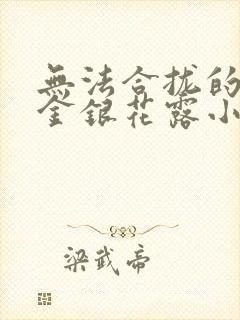 無法合拢的
金銀花露小
梁武帝